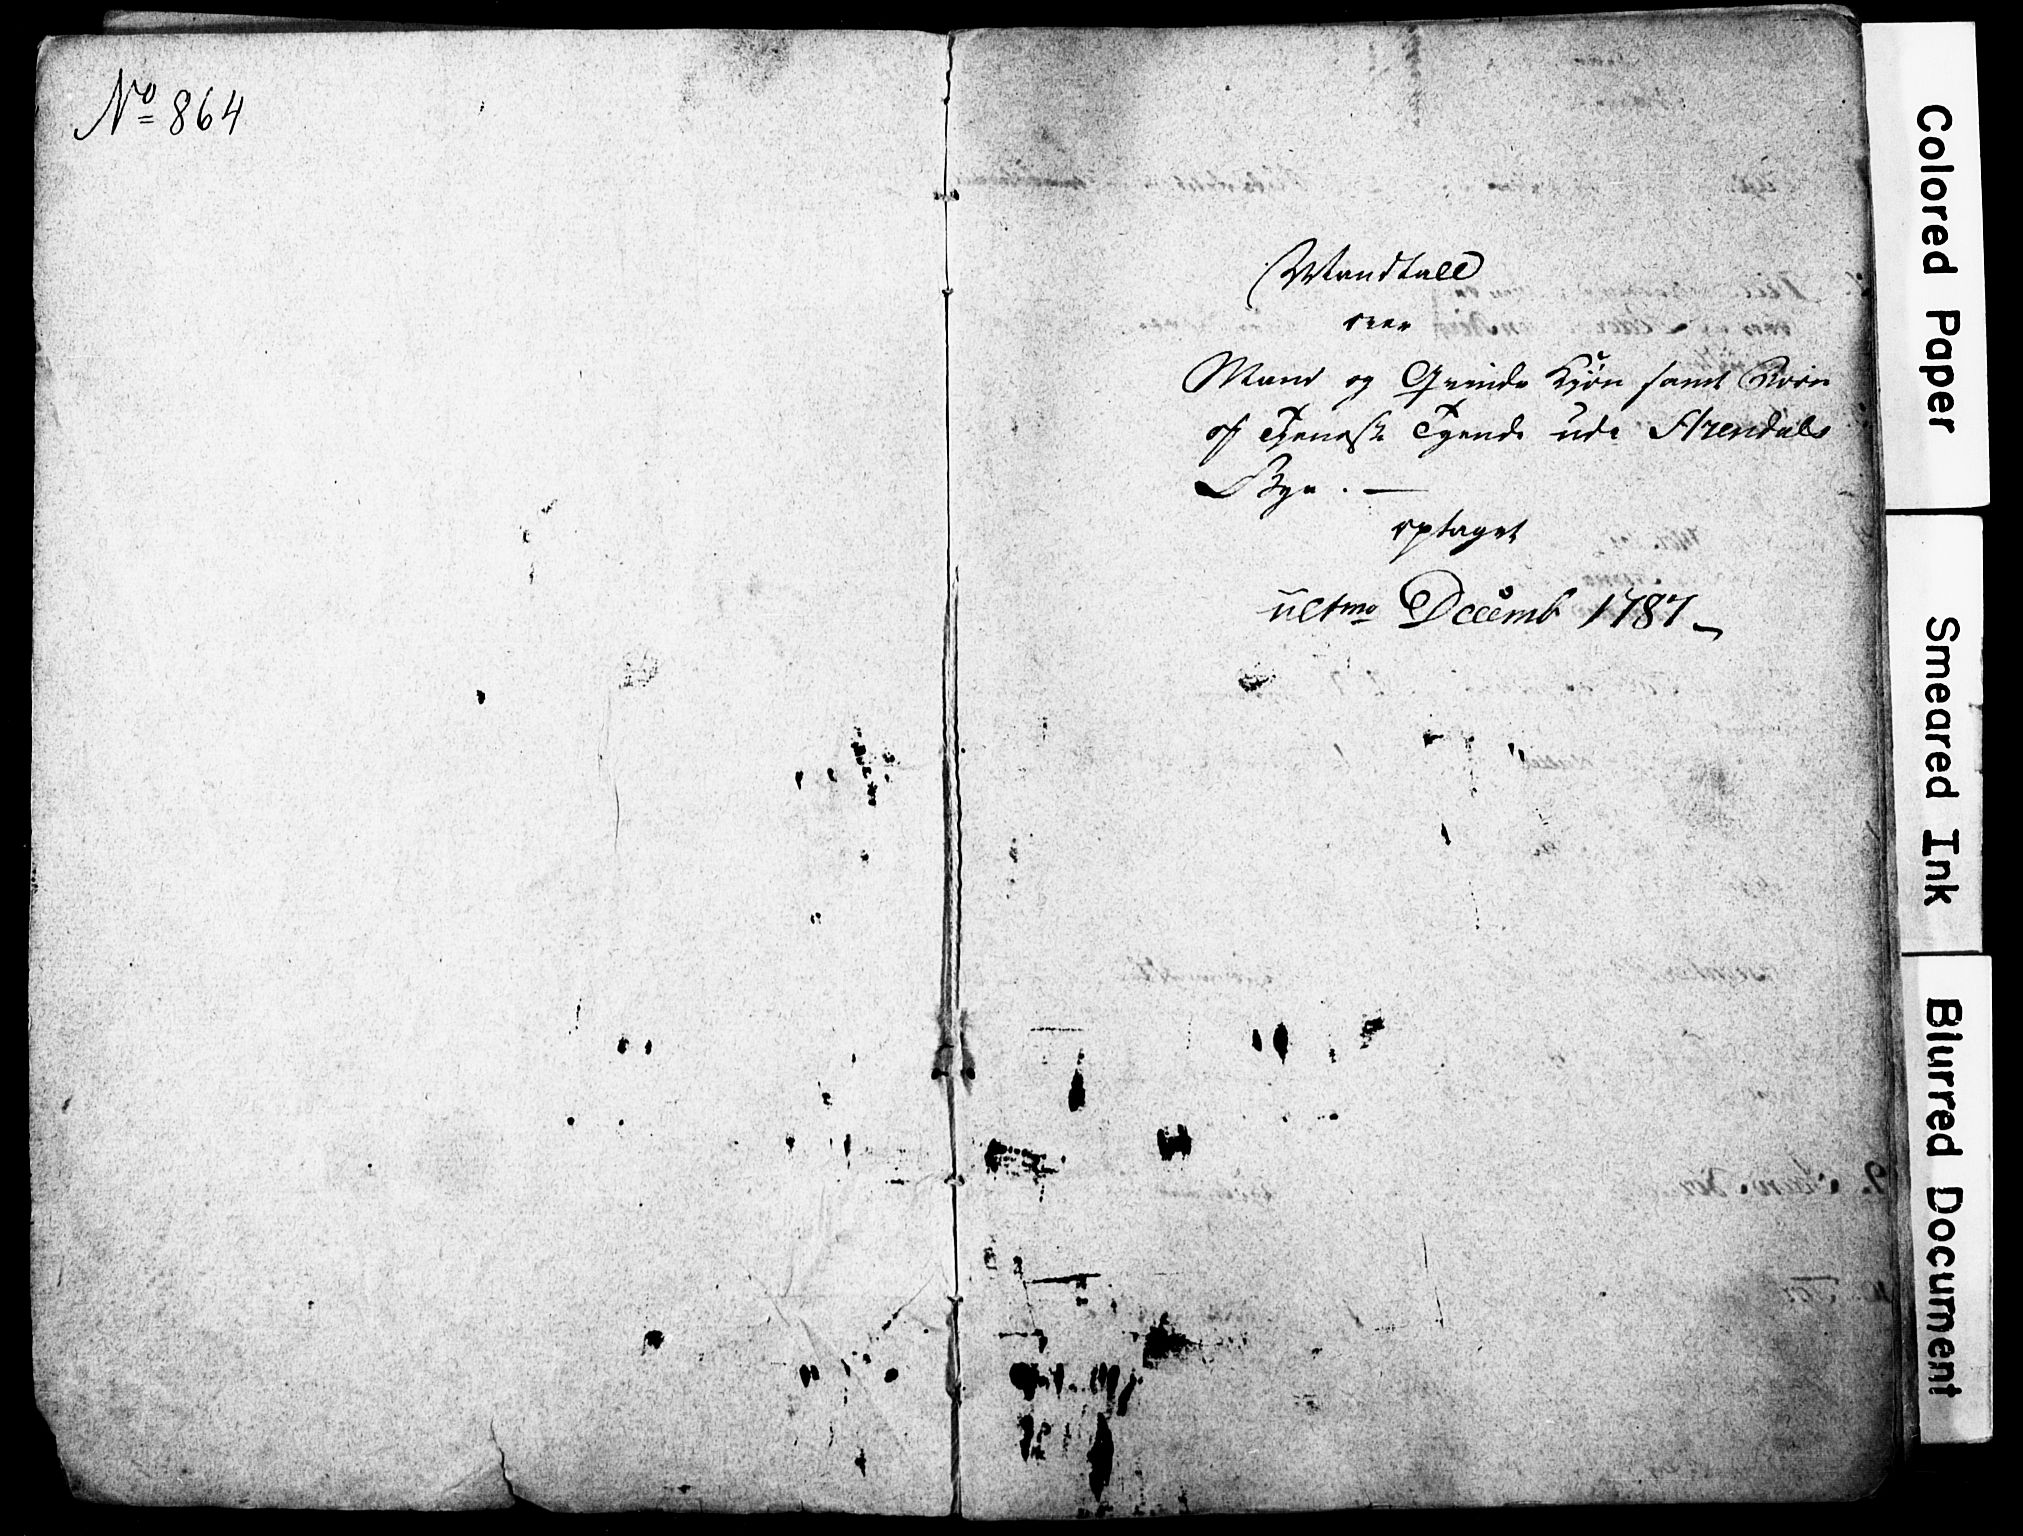 No 864
Mandtall
over
Mand og Qvinde Kjön samt Börn
og Tieneste Tyende udi Arendals
Bye. —
optaget
ultmo Decemb 1787
Colored Paper
Smeared Ink
Blurred Document